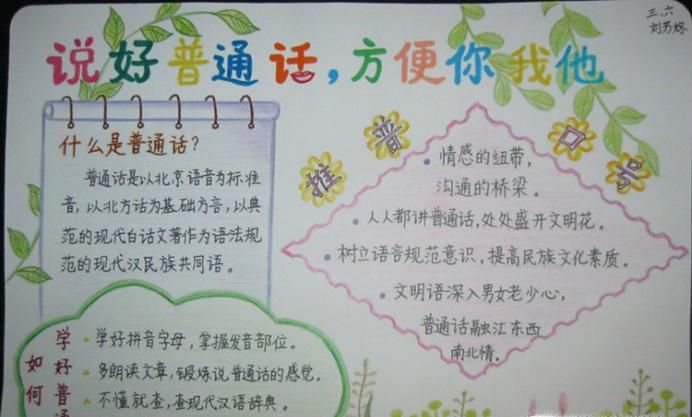 三.六
刘苏烙
说好普通话，方便你我他
什么是普通话？
普通话是以北京语音为标准
音，以北方话为基础方言，以典
范的现代白话文著作为语法规
范的现代汉民族共同语。
推普口号
情感的纽带，
沟通的桥梁。
人人都讲普通话，处处盛开文明花。
树立语音规范意识，提高民族文化素质。
文明语深入男女老少心，
普通话融汇东西
南北情。
如何
学好普通
学好拼音字母，掌握发音部位。
多朗读文章，锻炼说普通话的感觉。
不懂就查，查现代汉语辞典。